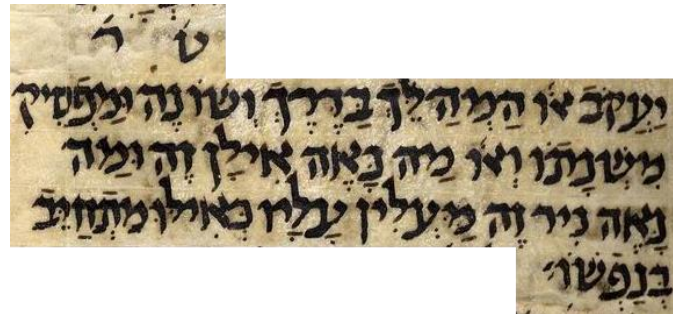 ט ר׳
יַעֲקֹב או׳ הַמְהַלֵּךְ בַּדֶּרֶךְ וְשׁוֹנֶה וּמַפְסִיק
מִשְׁנָתוֹ וְאו׳ מַה נָּאֶה אִילָן זֶה וּמַה
נָּאֶה נִיר זֶה מַעְלִין עָלָיו כְּאִילּוּ מִתְחַיֵּב
בְּנַפְשׁוֹ׃